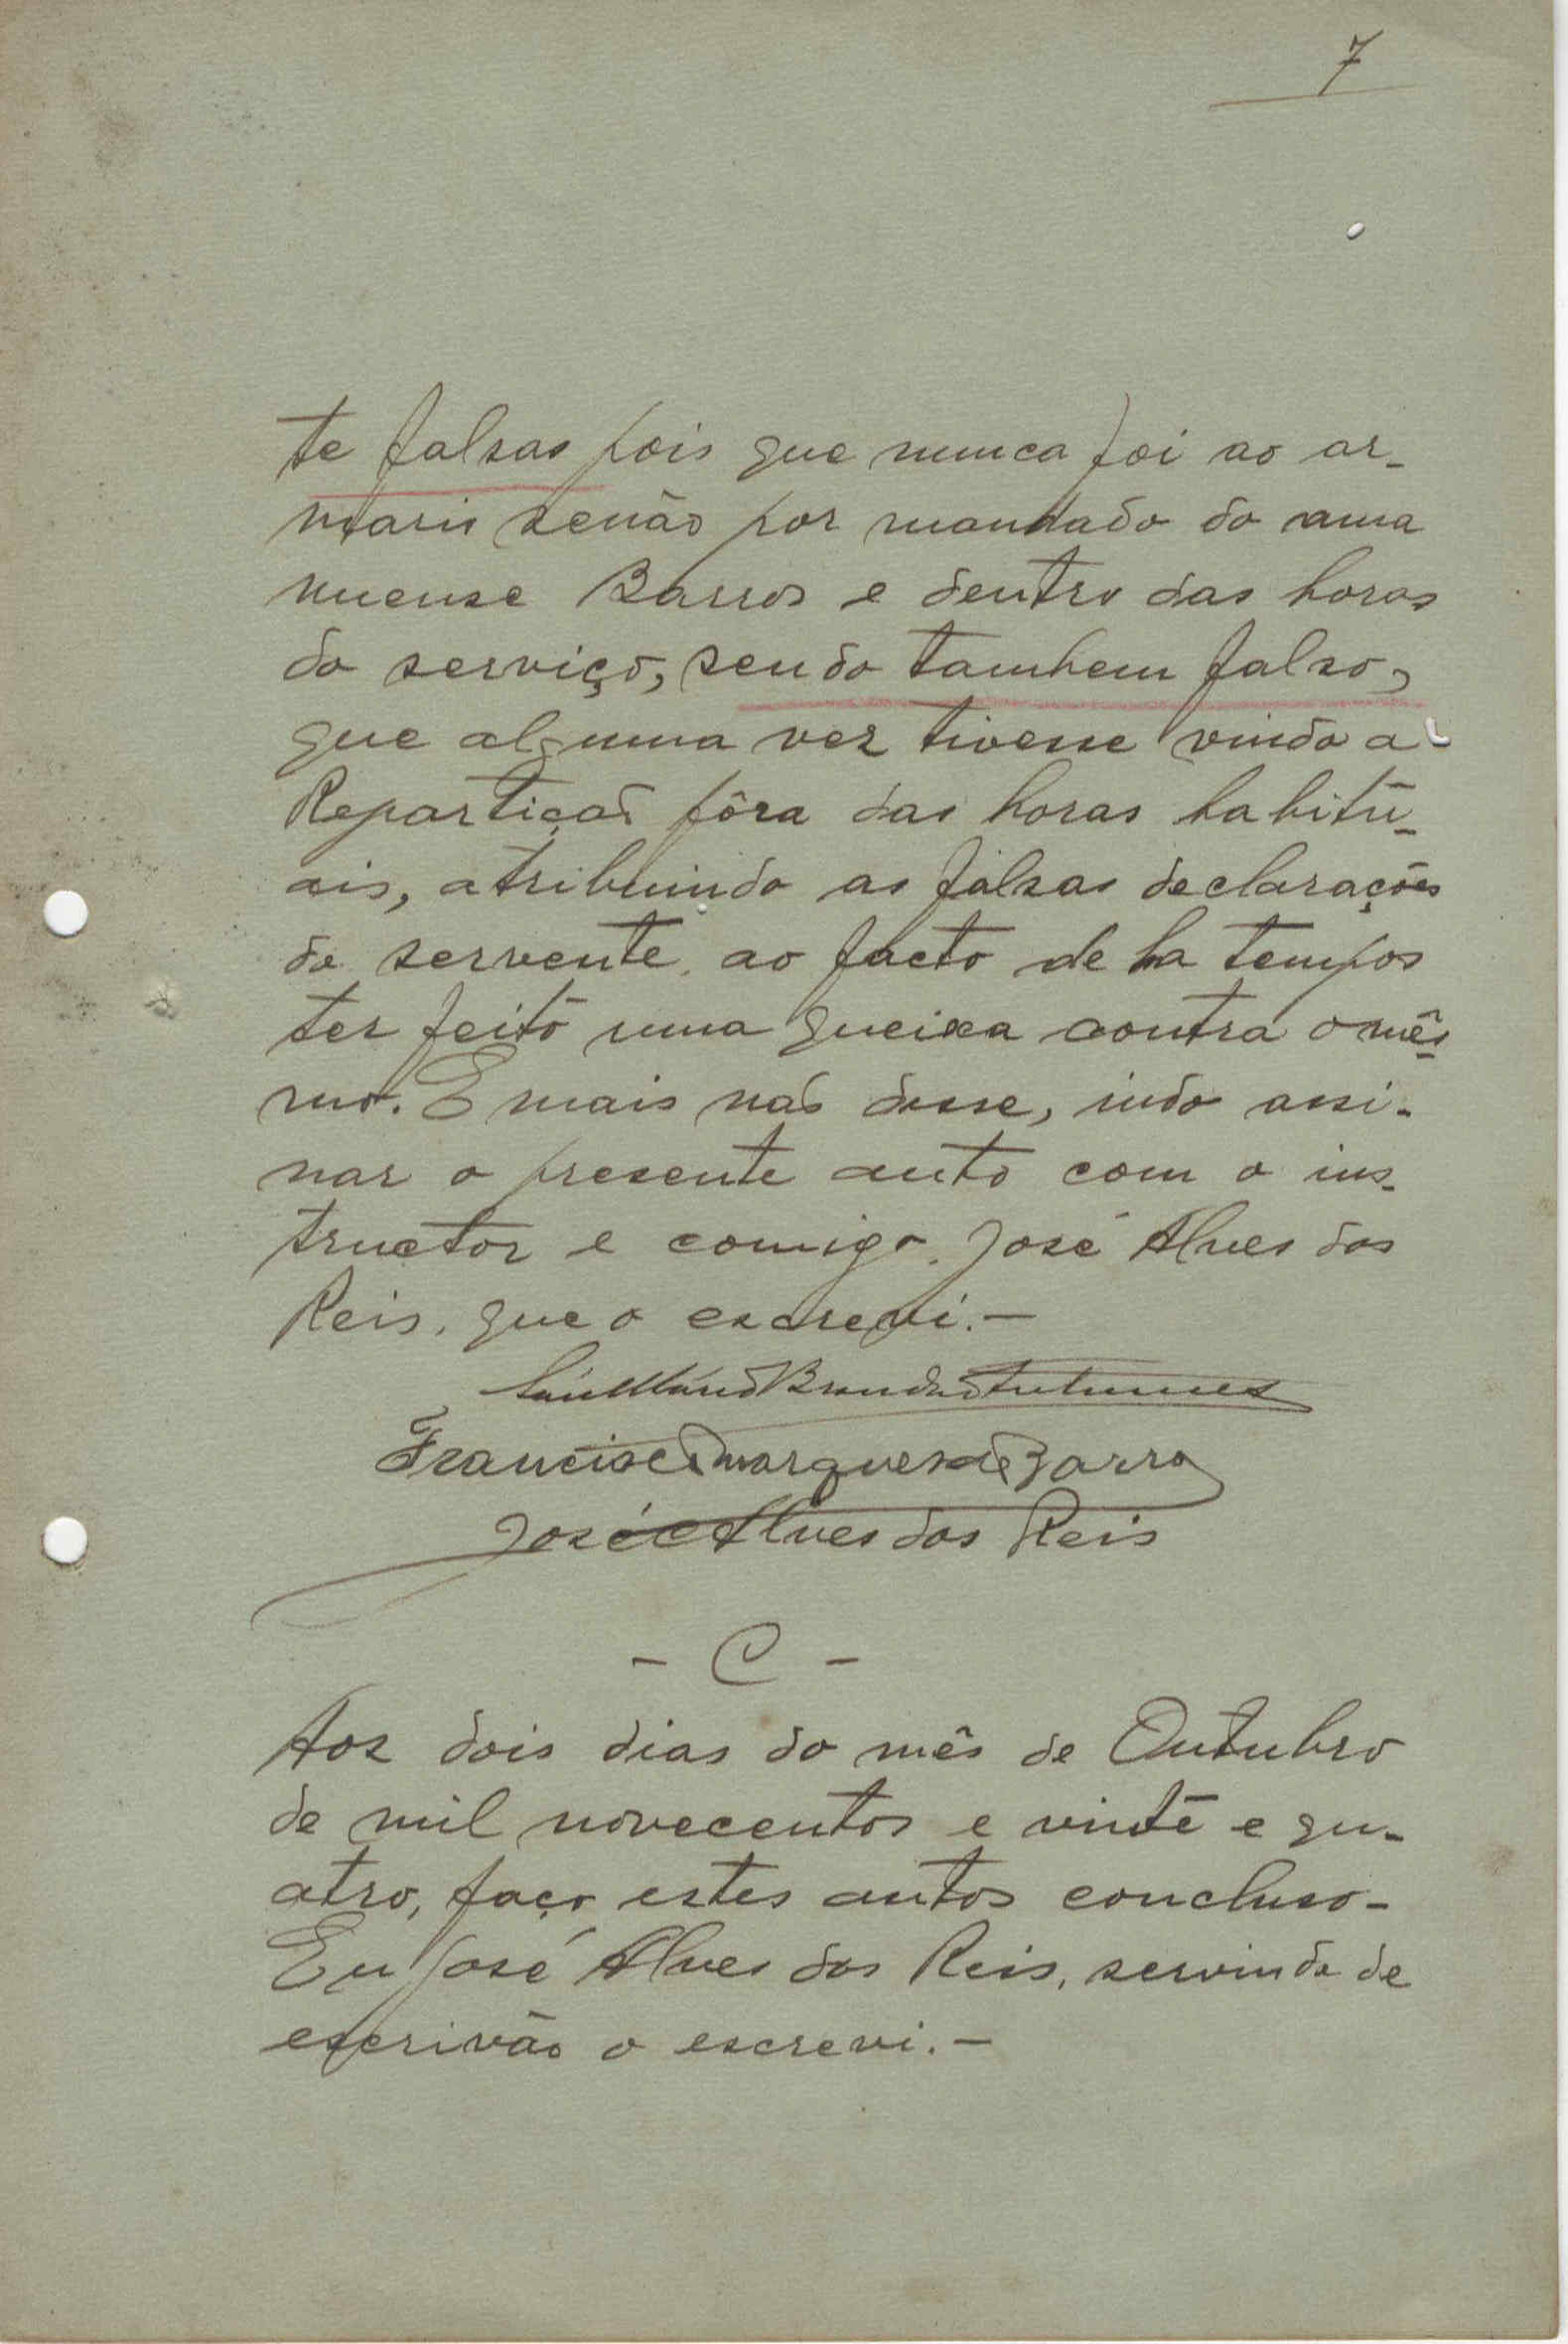 7
te falsas pois que nunca foi ao ar-
mario senão por mandado do ama
nuense Barros e dentro das horas
do serviço, sendo tambem falso,
que alguma vez tivesse vindo a
Repartição fôra das horas habitu-
ais, atribuindo as falsas declarações
do servente ao facto de ha tempos
ter feito uma queixa contra o mês
mo. E mais não disse, indo assi-
nar o presente auto com o ins-
tructor e comigo. José Alves dos
Reis, que o escrevi.-
Brandão Antunes
Francisco Marques de Barros
José Alves dos Reis
- C -
Aos dois dias do mês de Outubro
de mil novecentos e vinte e qu-
atro, faço estes autos concluso-
Eu José Alves dos Reis, servindo de
escrivão o escrevi.-